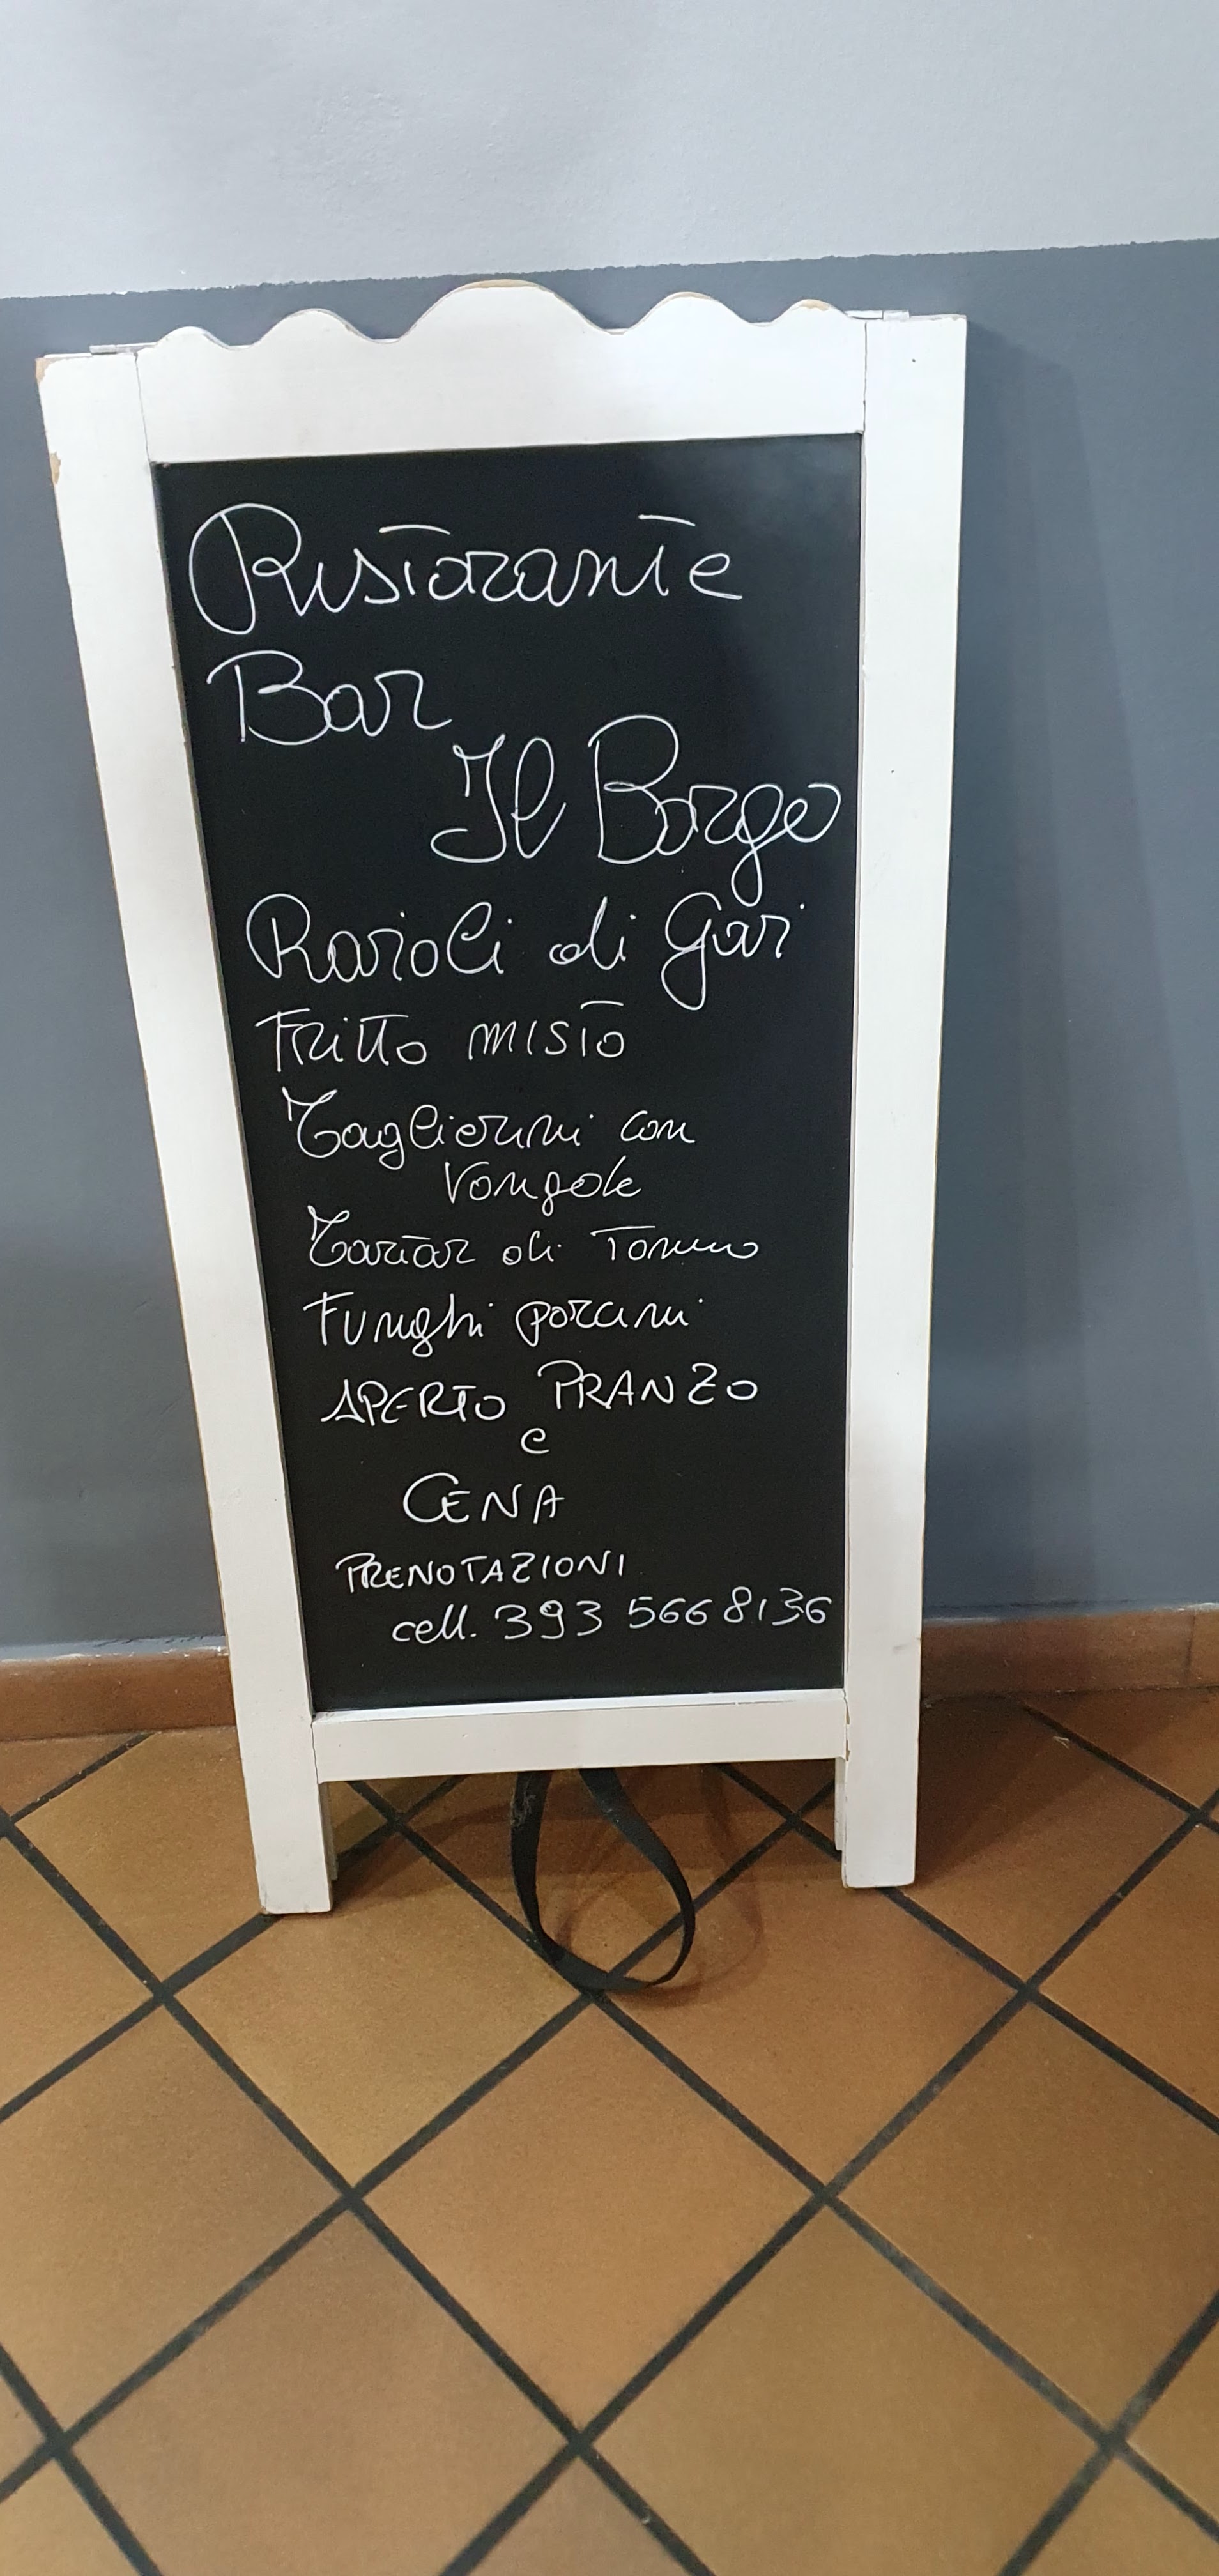 Ristorante
Bar
Il Borgo
Ravioli di Gavi
Fritto misto
Taglierini con
Vongole
Tartar di Tonno
Funghi porcini
APERTO PRANZO
e
CENA
PRENOTAZIONI
cell. 393 5668136